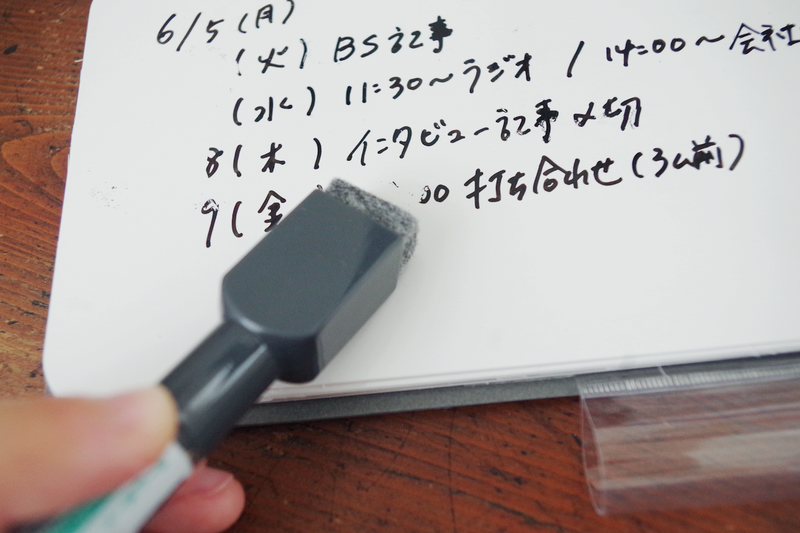 6/5(月)
(火) BS記事
(水) 11:30〜ラジオ / 14:00〜会社
8(木) インタビュー記事〆切
9(金 00 打ち合わせ(3h前)